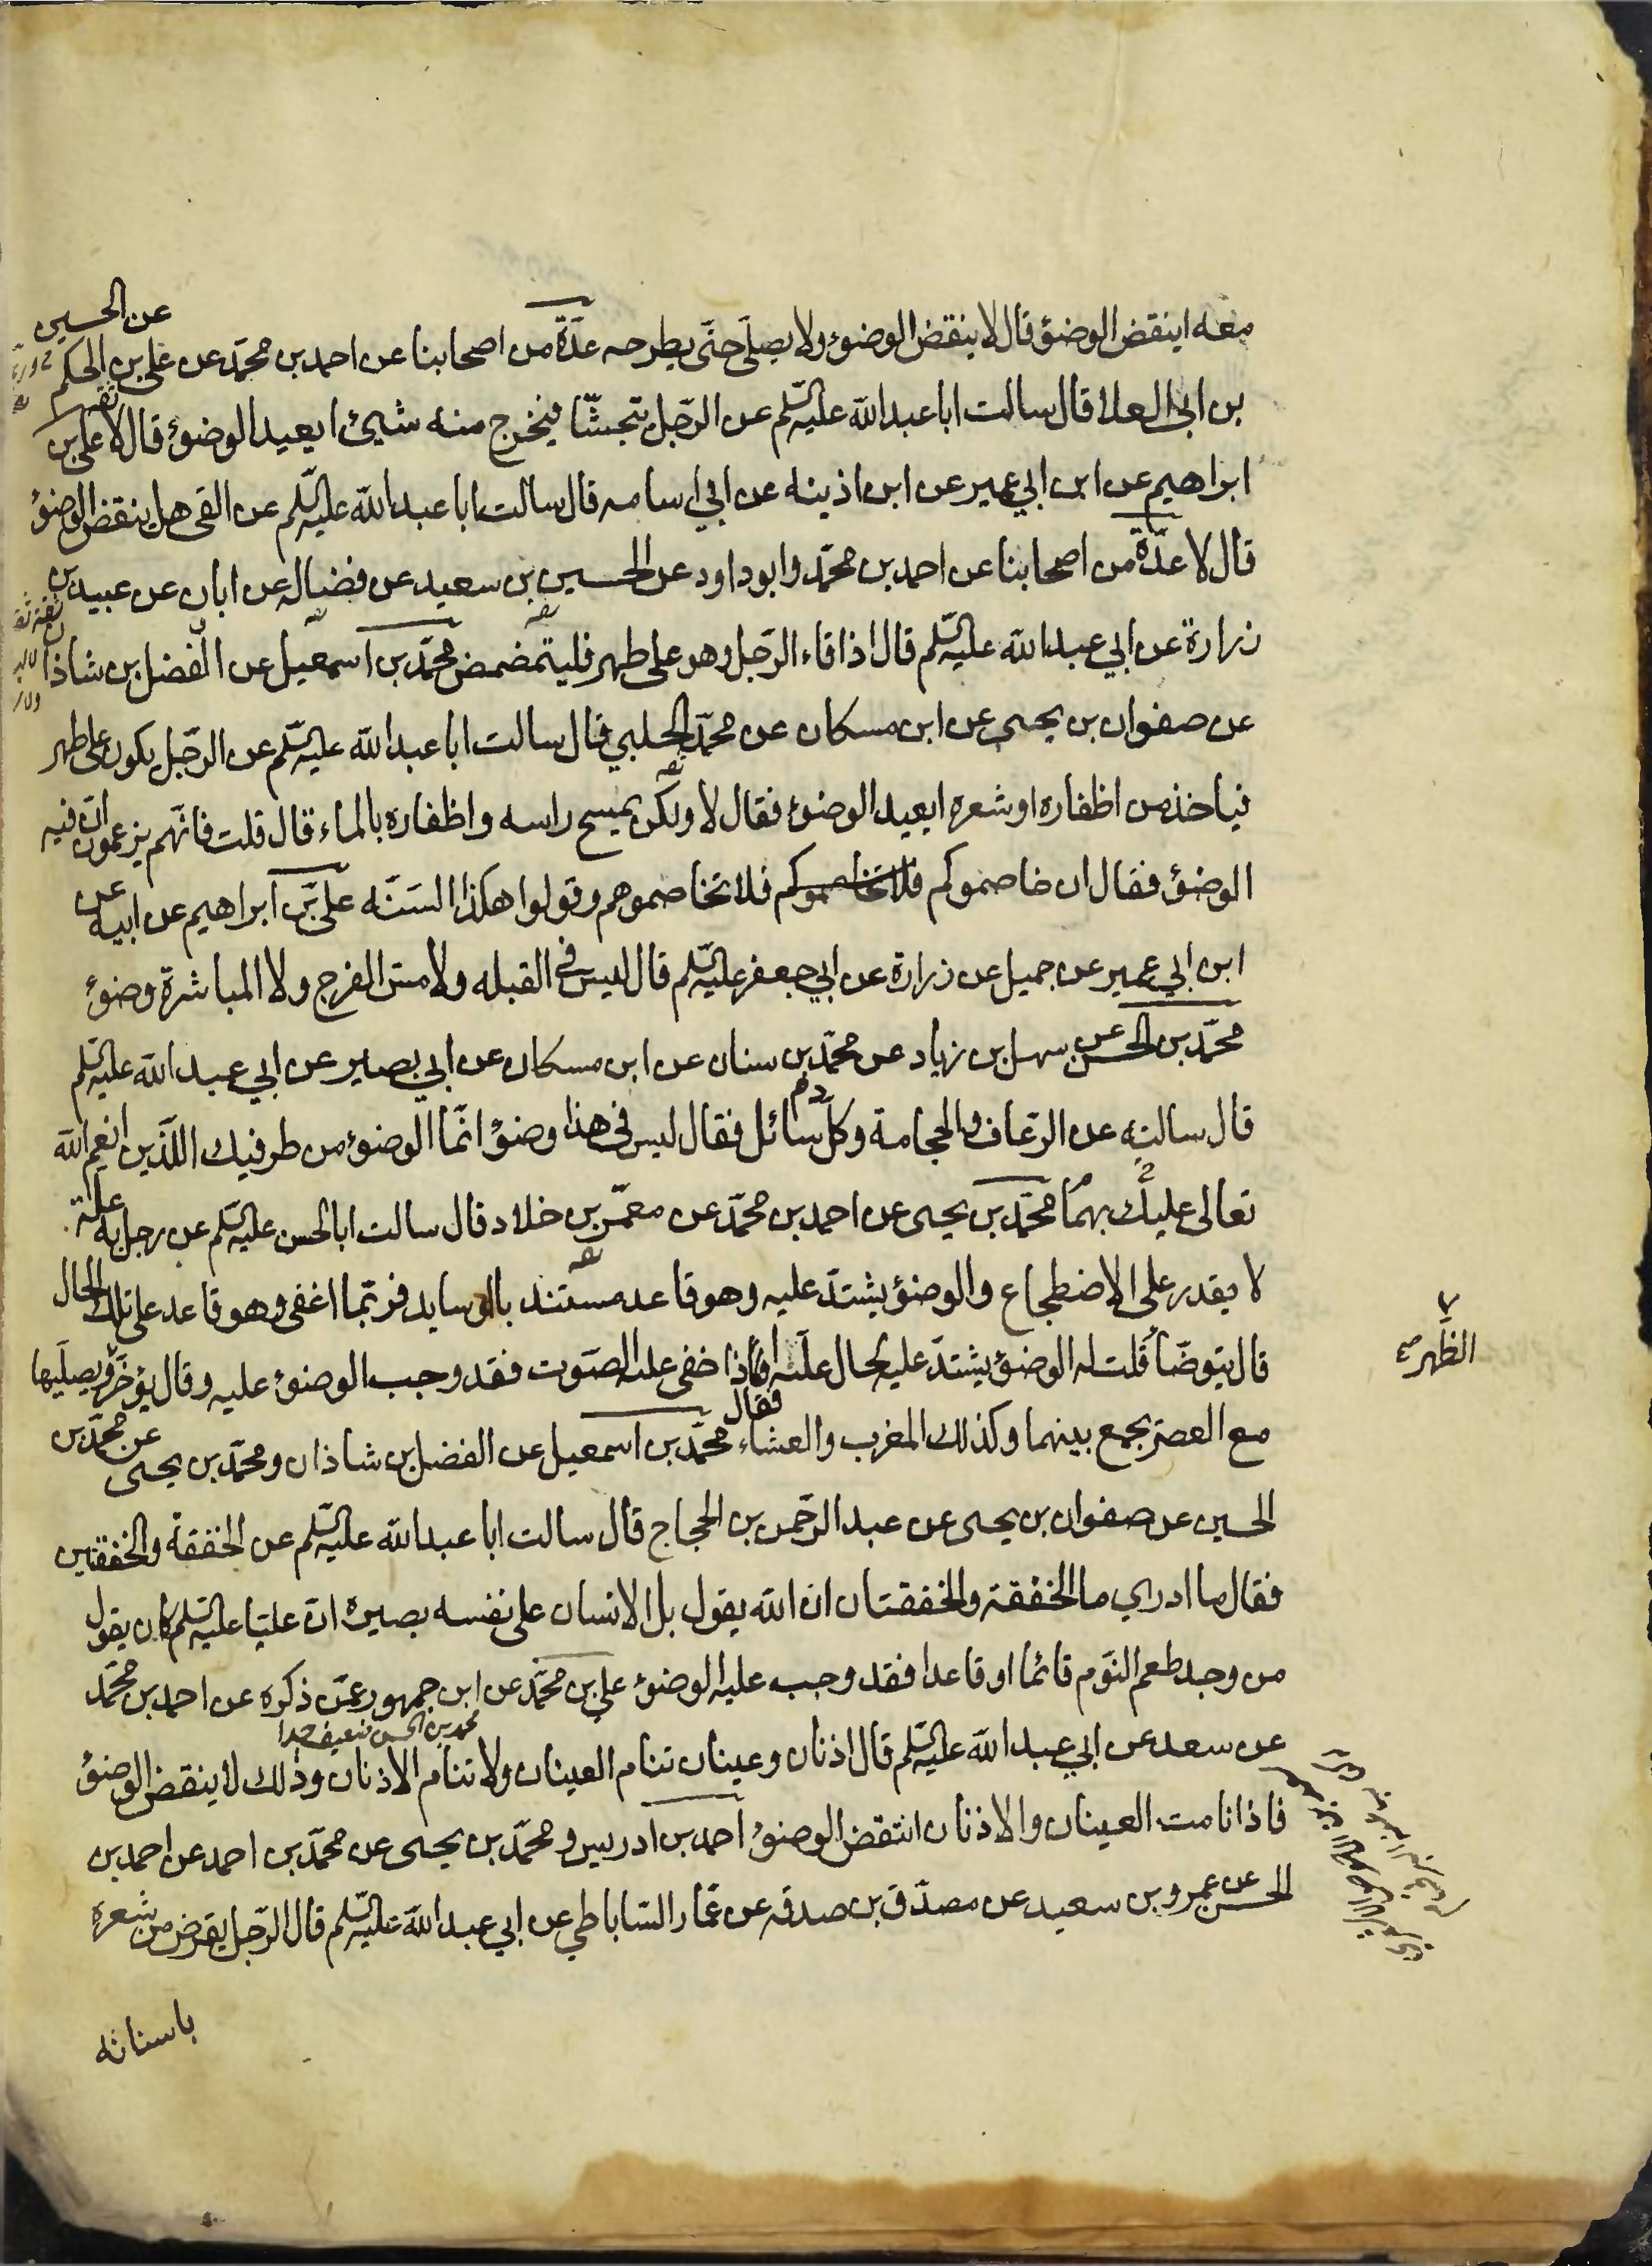 معه اينقض الوضوء قال لا ينقض الوضوء ولا يصلّي حتّى يطرحه عدّة من اصحابنا عن احمد بن محمّد عن علي بن الحكم عن الحسين
بن ابي العلا قال سالت ابا عبد الله عليه السّلم عن الرّجل يتجشّا فيخرج منه شيئ ايعيد الوضوء قال لا علي بن
ابراهيم عن ابن ابي عمير عن ابن اذينه عن ابي اسامه قال سالت ابا عبد الله عليه السّلم عن القي هل ينقض الوضوء
قال لا عدّة من اصحابنا عن احمد بن محمّد وابو داود عن الحسين بن سعيد عن فضاله عن ابان عن عبيد بن
زرارة عن ابي عبد الله عليه السّلم قال اذا قاء الرّجل وهو على طهر فليتمضمض محمّد بن اسمعيل عن الفضل بن شاذان
عن صفوان بن يحيى عن ابن مسكان عن محمّد الحلبي قال سالت ابا عبد الله عليه السّلم عن الرّجل يكون على طهر
فياخذ من اظفاره او شعره ايعيد الوضوء فقال لا ولكن يمسح راسه واظفاره بالماء قال قلت فانّهم يزعمون انّ فيه
الوضوء فقال ان خاصموكم فلا تخاصموكم فلا تخاصموهم وقولوا هكذا السّنّه علي بن ابراهيم عن ابيه عن
ابن ابي عمير عن جميل عن زرارة عن ابي جعفر عليه السّلم قال ليس في القبله ولا مسّ الفرج ولا المباشرة وضوء
محمّد بن الحسن عن سهل بن زياد عن محمّد بن سنان عن ابن مسكان عن ابي بصير عن ابي عبد الله عليه السّلم
قال سالته عن الرّعاف والحجامة وكلّ دم سائل فقال ليس في هذا وضوء انّما الوضوء من طرفيك اللّذين انعم الله
تعالى عليك بهما محمّد بن يحيى عن احمد بن محمّد عن معمّر بن خلاد قال سالت ابا الحسن عليه السّلم عن رجل به علّة
لا يقدر على الاضطجاع والوضوء يشتدّ عليه وهو قاعد مستند بالوسايد فربّما اغفى وهو قاعد على تلك الحال
قال يتوضّا قلت له الوضوء يشتدّ عليه لحال علّته فقال اذا خفى عليه الصّوت فقد وجب الوضوء عليه وقال يؤخّر ويصلّيها
الظهر صح
مع العصر يجمع بينهما وكذلك المغرب والعشاء محمّد بن اسمعيل عن الفضل بن شاذان ومحمّد بن يحيى عن محمّد بن
الحسين عن صفوان بن يحيى عن عبد الرّحمن بن الحجاج قال سالت ابا عبد الله عليه السّلم عن الخفقة والخفقتين
فقال ما ادري ما الخفقة والخفقتان ان الله يقول بل الانسان على نفسه بصيرة انّ عليّا عليه السّلم كان يقول
من وجد طعم النّوم قائما او قاعدا فقد وجب عليه الوضوء علي بن محمّد عن ابن جمهور عمّن ذكره عن احمد بن محمّد
محمد بن الحسن ضعيف جدا
عن سعد عن ابي عبد الله عليه السّلم قال اذنان وعينان تنام العينان ولا تنام الاذنان وذلك لا ينقض الوضوء
فاذا نامت العينان والاذنان انتقض الوضوء احمد بن ادريس ومحمّد بن يحيى عن محمّد بن احمد عن احمد بن
الحسن عن عمرو بن سعيد عن مصدّق بن صدقه عن عمّار السّاباطي عن ابي عبد الله عليه السّلم قال الرّجل يقرض من شعره
باسنانه